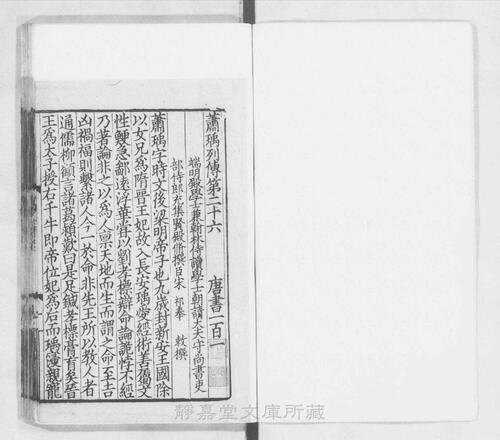 蕭瑀列傳第二十六　唐書一百一
端明殿學士兼翰林侍讀學士朝請大夫守尚書吏
部侍郎充集賢殿脩撰臣宋　祁奉　敕撰
蕭瑀字時文後梁明帝子也九歲封新安王國除
以女兄為隋晉王妃故入長安瑀愛經術善屬文
性鯁急鄙遠浮華嘗以劉孝標辯命論詭悖不經
乃著論非之以為人禀天地而生而謂之命至吉
凶禍福則繫諸人今一於命非先王所以教人者
通儒柳顧言諸葛頴歎曰是足鍼孝標膏肓至晉
王為太子授右千牛即帝位妃為后而瑀寖親寵
靜嘉堂文庫所藏